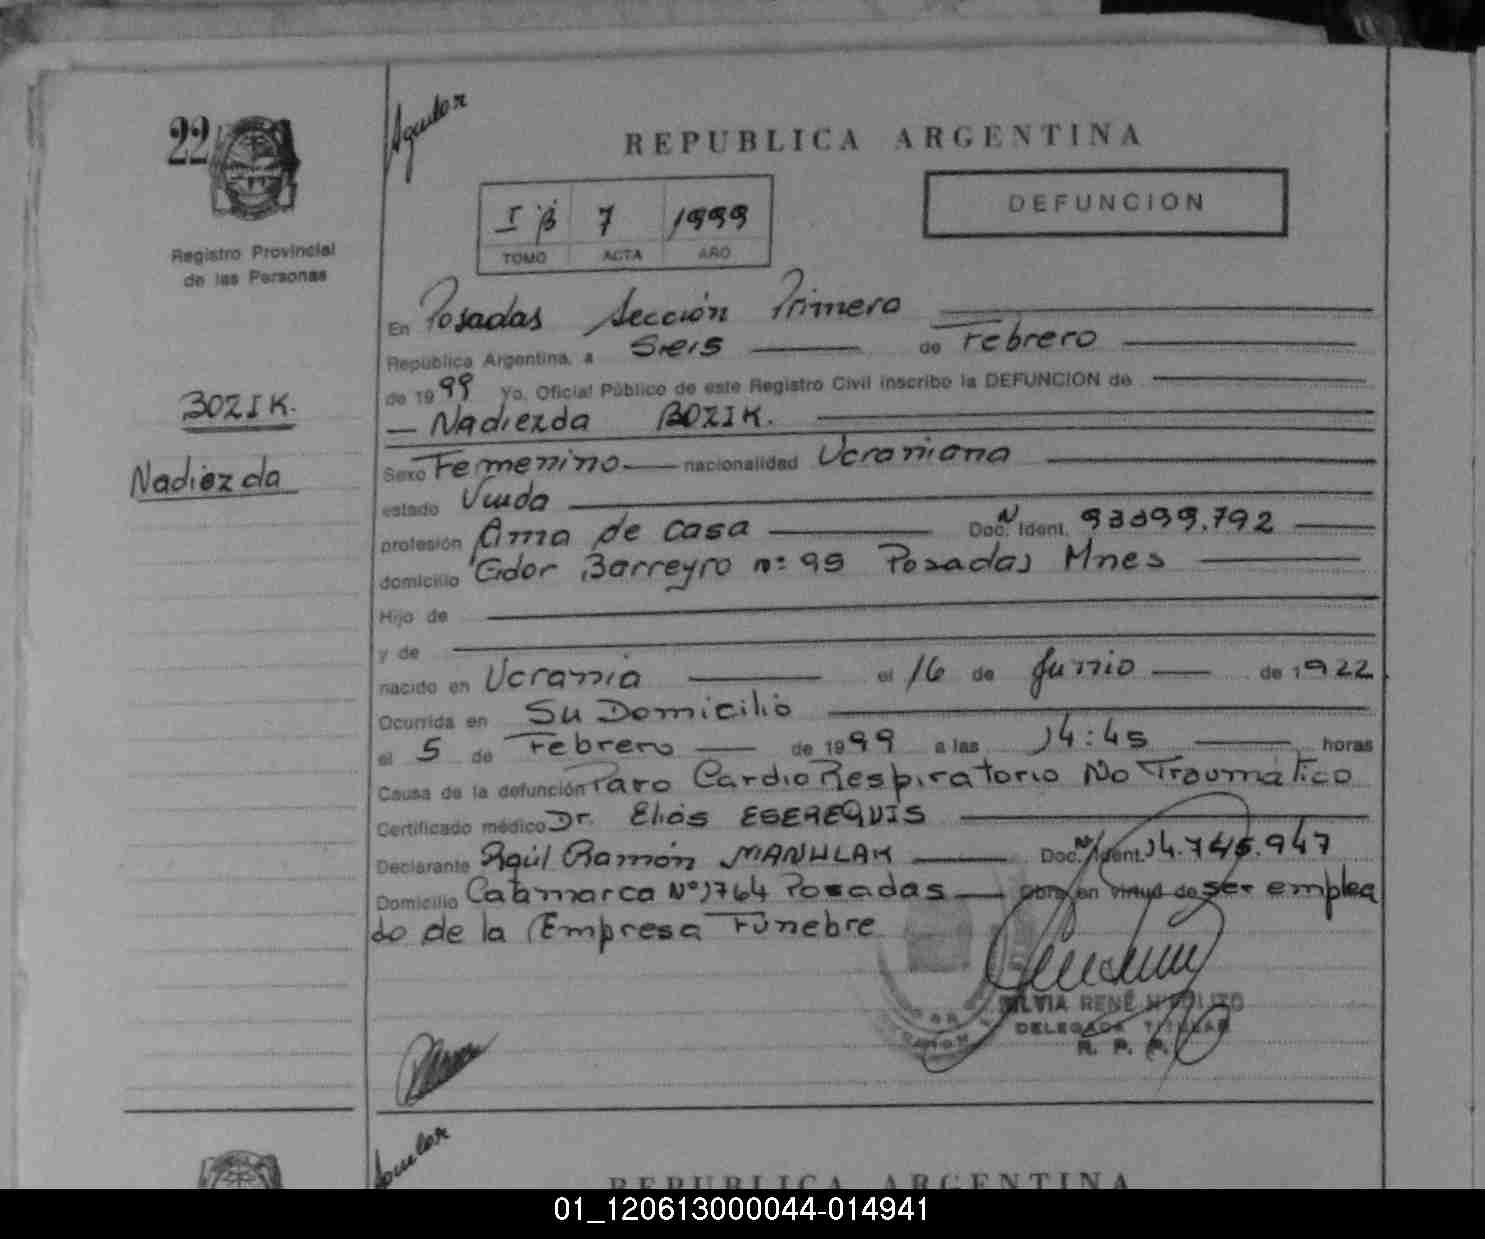 22
Aguilar
REPUBLICA ARGENTINA
DEFUNCION
I B 7 1999
TOMO ACTA AÑO
Registro Provincial
de las Personas
En Posadas Sección Primera
República Argentina, a Seis de Febrero
de 1999 Yo, Oficial Público de este Registro Civil inscribo la DEFUNCION de
BOZIK.
Nadiezda BOZIK.
Nadiezda
Sexo Femenino nacionalidad Ucraniana
estado Viuda
profesión Ama de casa Doc. N Ident. 93899.792
domicilio Gdor Barreyro nº 99 Posadas Mnes
Hijo de
y de
nacido en Ucrania el 16 de Junio de 1922
Ocurrida en Su Domicilio
el 5 de Febrero de 1999 a las 14:45 horas
Causa de la defunción Paro CardioRespiratorio No Traumático
Certificado médico Dr. Eliás
Declarante Raúl Ramón MANULAK Doc. N Ident. 14.745.947
Domicilio Catamarca Nº 1764 Posadas obra en virtud de ser emplea
do de la Empresa Fúnebre
SILVIA RENÉ HIPOLITO
DELEGADA TITULAR
R. P. P.
REPUBLICA ARGENTINA
01_120613000044-014941